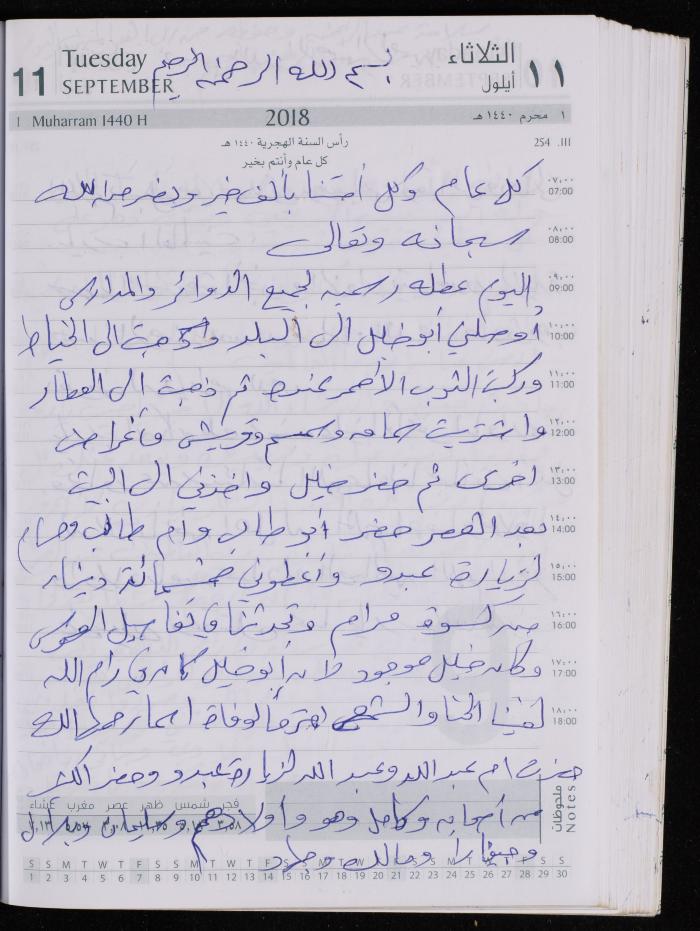 11 Tuesday SEPTEMBER بسم الله الرحمن الرحيم الثلاثاء أيلول ١١
1 Muharram 1440 H 2018 ١ محرم ١٤٤٠ هـ
رأس السنة الهجرية ١٤٤٠ هـ 254 .III
كل عام وأنتم بخير
٠٧:٠٠ 07:00 كل عام وكل أمتنا بألف خير ونصر من الله
٠٨:٠٠ 08:00 سبحانه وتعالى
٠٩:٠٠ 09:00 اليوم عطله رسميه لجميع الدوائر والمدارس
١٠:٠٠ 10:00 أوصلني أبو خليل الى البلد الى الخياط
١١:٠٠ 11:00 الثوب الأحمر عنده ثم ذهبت الى العطار
١٢:٠٠ 12:00 واشتريت سماقه وسمسم وأغراض
١٣:٠٠ 13:00 اخرى ثم حضر خليل واخذني الى البيت
١٤:٠٠ 14:00 بعد العصر حضر أبو طالب وأم طالب ومرام
١٥:٠٠ 15:00 لزيارة عبدو وأعطوني خمسمائة دينار
١٦:٠٠ 16:00 من كسوة مرام وتحدثنا في تفاصيل العرس
١٧:٠٠ 17:00 وكان خليل موجود لأن أبو خليل كان في رام الله
١٨:٠٠ 18:00 لغينا الحنا والشمع احتراماً لوفاة اسما رحمها الله
حضرت ام عبد الله وعبد الله لزيارة عبدو وحضر اكثر
فجر شمس ظهر عصر مغرب عشاء
من أصحابه وكامل وهو وأولادهم وسليمان وبلال
ملحوظات Notes
S S M T W T F S S M T W T F S S M T W T F S S M T W T F S S
1 2 3 4 5 6 7 8 9 10 11 12 13 14 15 16 17 18 19 20 21 22 23 24 25 26 27 28 29 30